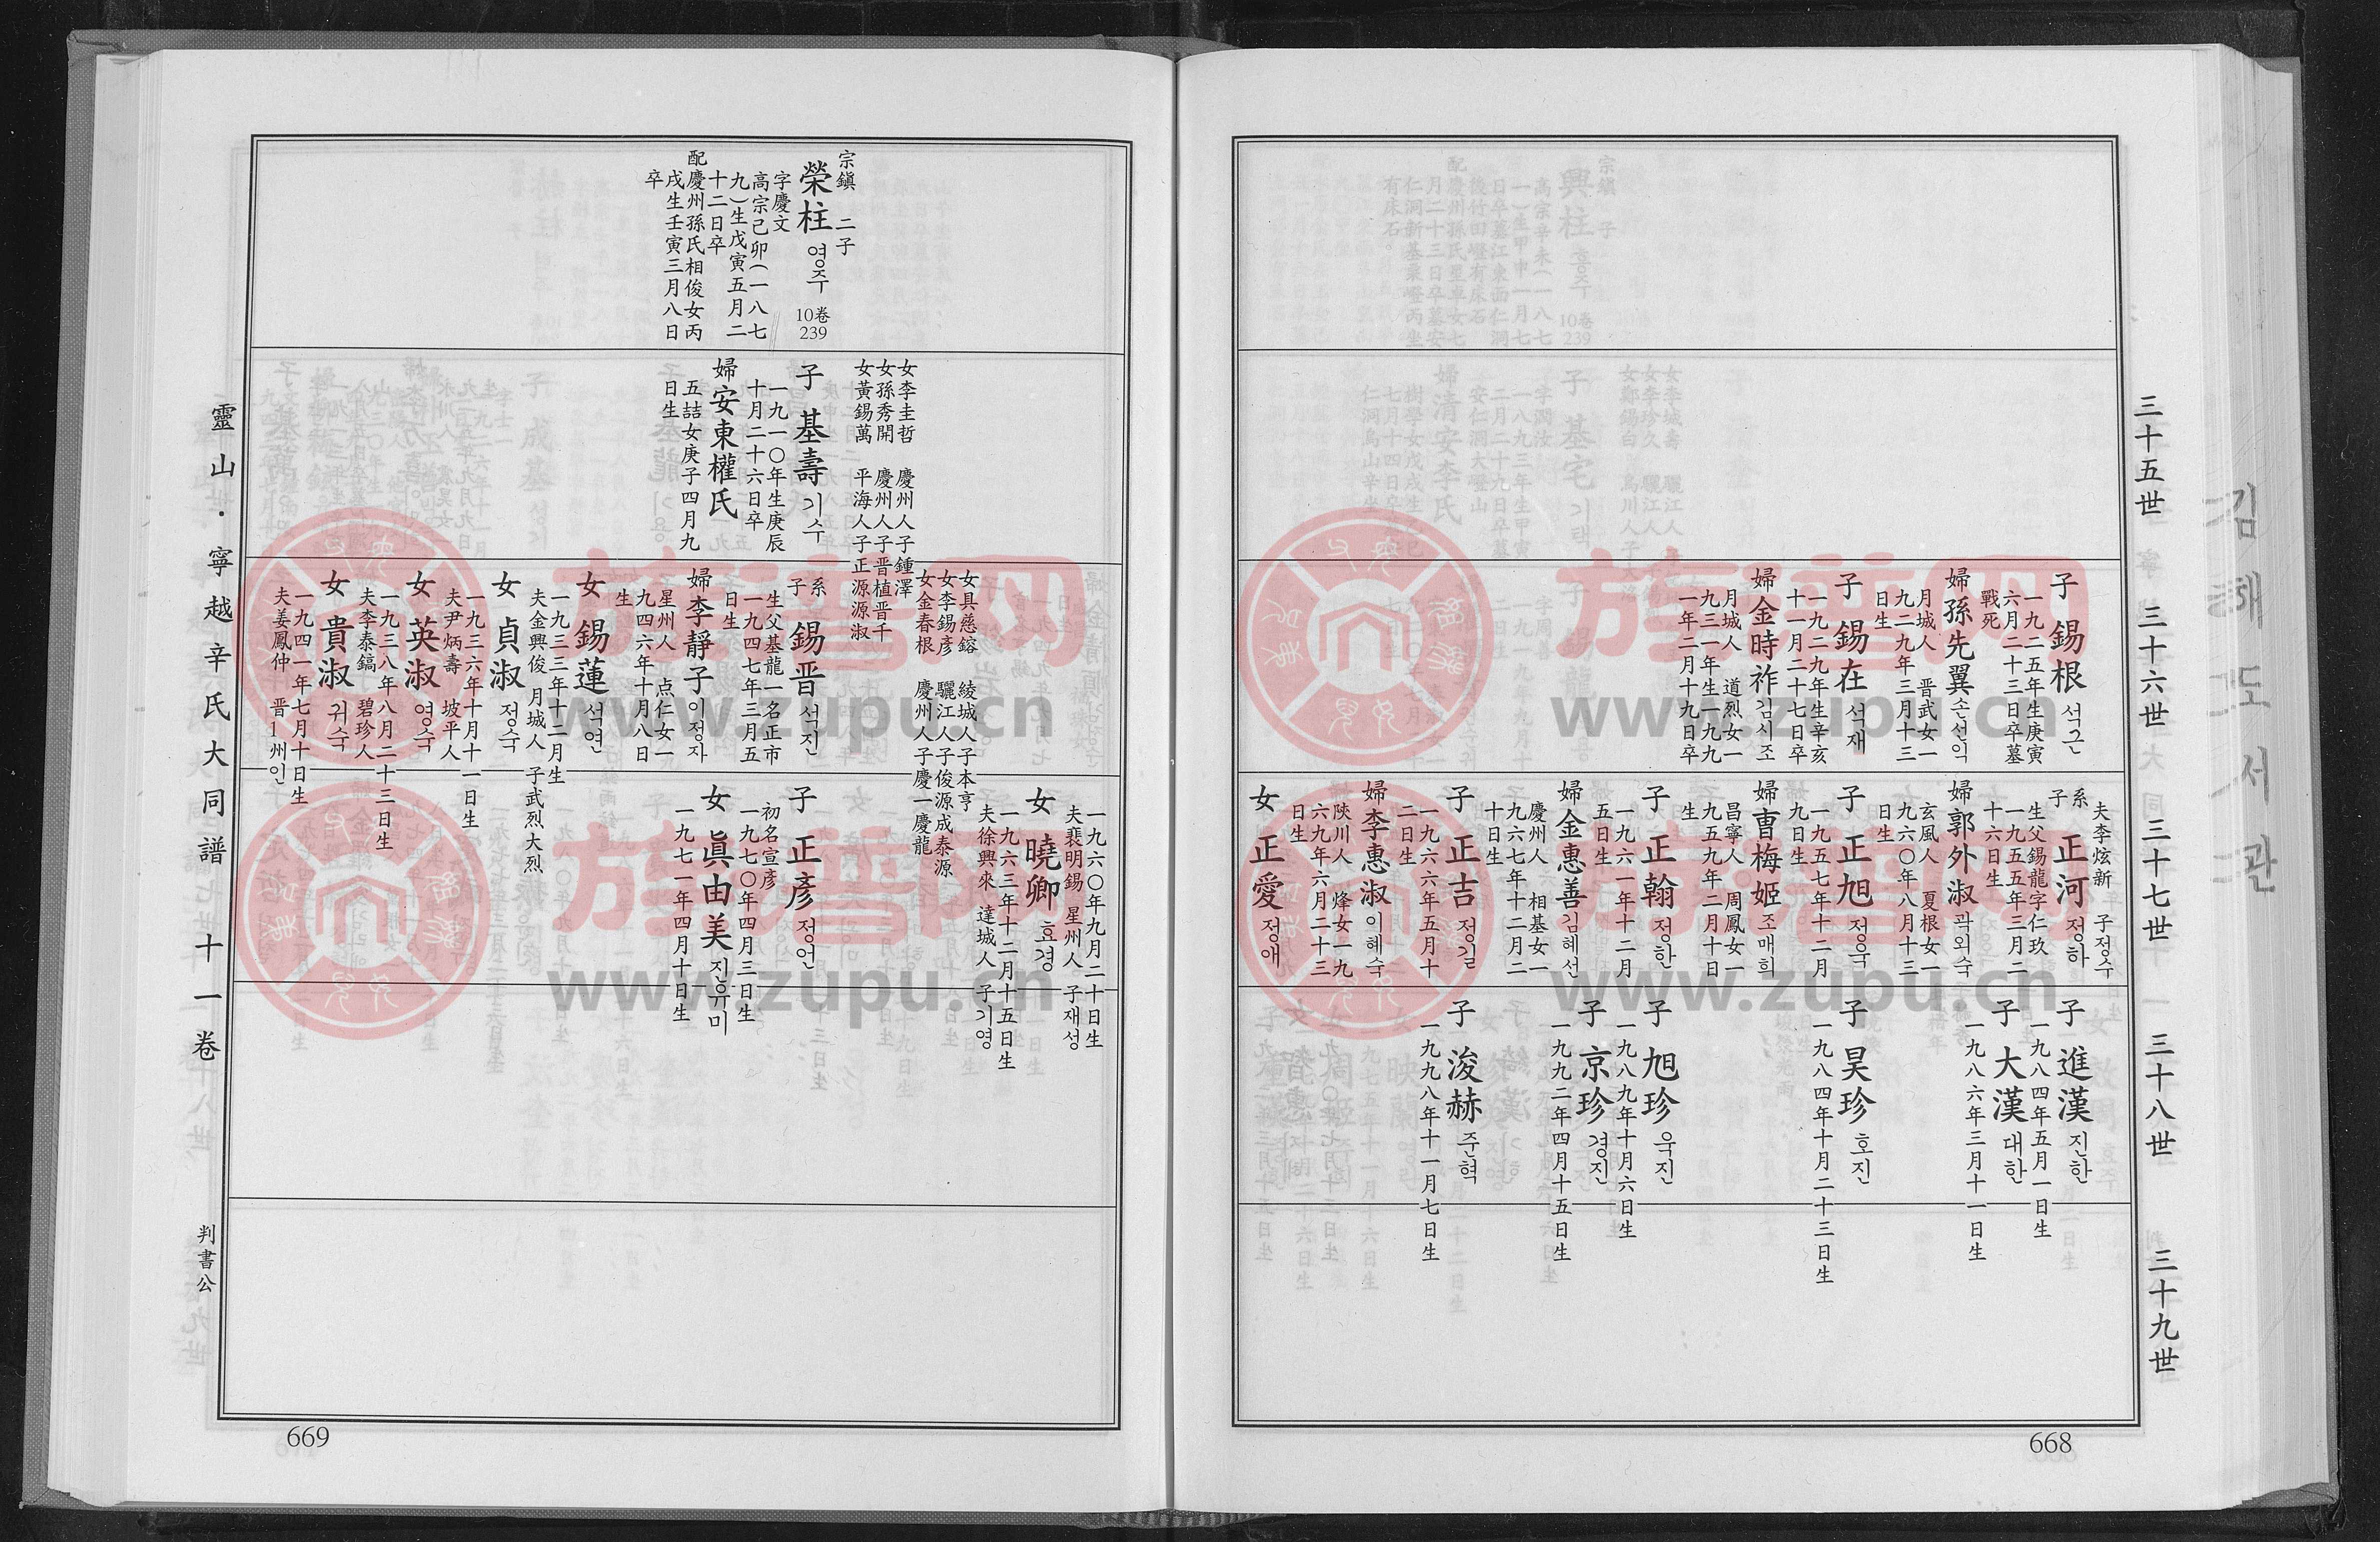 三十五世
三十六世
三十七世
三十八世
三十九世
김해도서관
子 錫根 석근
一九二五年生庚寅
六月二十三日卒墓
戰死
婦 孫先翼 손선익
月城人 晋武女一
九二九年三月十三
日生
子 錫在 석재
一九二九年生辛亥
十一月二十七日卒
婦 金時祚 김시조
月城人 道烈女一
九三一年生一九九
一年二月十九日卒
夫李炫新 子정수
系子 正河 정하
生父錫龍字仁玖
一九五五年三月二
十六日生
婦 郭外淑 곽외숙
玄風人 夏根女一
九六〇年八月十三
日生
子 正旭 정욱
一九五七年十二月
九日生
婦 曺梅姬 조매희
昌寧人 周鳳女一
九五九年二月十日
生
子 正翰 정한
一九六一年十二月
五日生
婦 金惠善 김혜선
慶州人 相基女一
九六七年十二月二
十日生
子 正吉 정길
一九六六年五月十
二日生
婦 李惠淑 이혜숙
陜川人 烽女一九
六九年六月二十三
日生
女 正愛 정애
子 進漢 진한
一九八四年五月一日生
子 大漢 대한
一九八六年三月十一日生
子 昊珍 호진
一九八四年十月二十三日生
子 旭珍 욱진
一九八九年十月六日生
子 京珍 경진
一九九二年四月十五日生
子 浚赫 준혁
一九九八年十一月七日生
668
宗鎭 二子
榮柱 영주 10卷 239
字慶文
高宗己卯(一八七
九)生戊寅五月二
十二日卒
配慶州孫氏相俊女丙
戌生壬寅三月八日
卒
女李圭哲 慶州人子鍾澤
女孫秀開 慶州人子晋植晋千
女黃錫萬 平海人子正源源淑
子 基壽 기수
一九一〇年生庚辰
十月二十六日卒
婦 安東權氏
五喆女庚子四月九
日生
女具慈鎔 綾城人子本亨
女李錫彦 驪江人子俊源成泰源
女金春根 慶州人子慶一慶龍
系子 錫晋 석진
生父基龍一名正市
一九四七年三月五
日生
婦 李靜子 이정자
星州人 点仁女一
九四六年十月八日
生
女 錫蓮 석연
一九三三年十二月生
夫金興俊 月城人 子武烈大烈
女 貞淑 정숙
一九三六年十月十一日生
夫尹炳壽 坡平人
女 英淑 영숙
一九三八年八月二十三日生
夫李泰鎬 碧珍人
女 貴淑 귀숙
一九四一年七月十日生
夫姜鳳仲 晋1州인
一九六〇年九月二十日生
夫裵明錫 星州人 子재성
女 曉卿 효경
一九六三年十二月十五日生
夫徐興來 達城人 子기영
子 正彥 정언
初名宣彦
一九七〇年四月三日生
女 眞由美 진유미
一九七一年四月十日生
靈山·寧越辛氏大同譜 十一卷 判書公
669
族谱网
www.zupu.cn
族谱网
www.zupu.cn
族谱网
www.zupu.cn
族谱网
www.zupu.cn